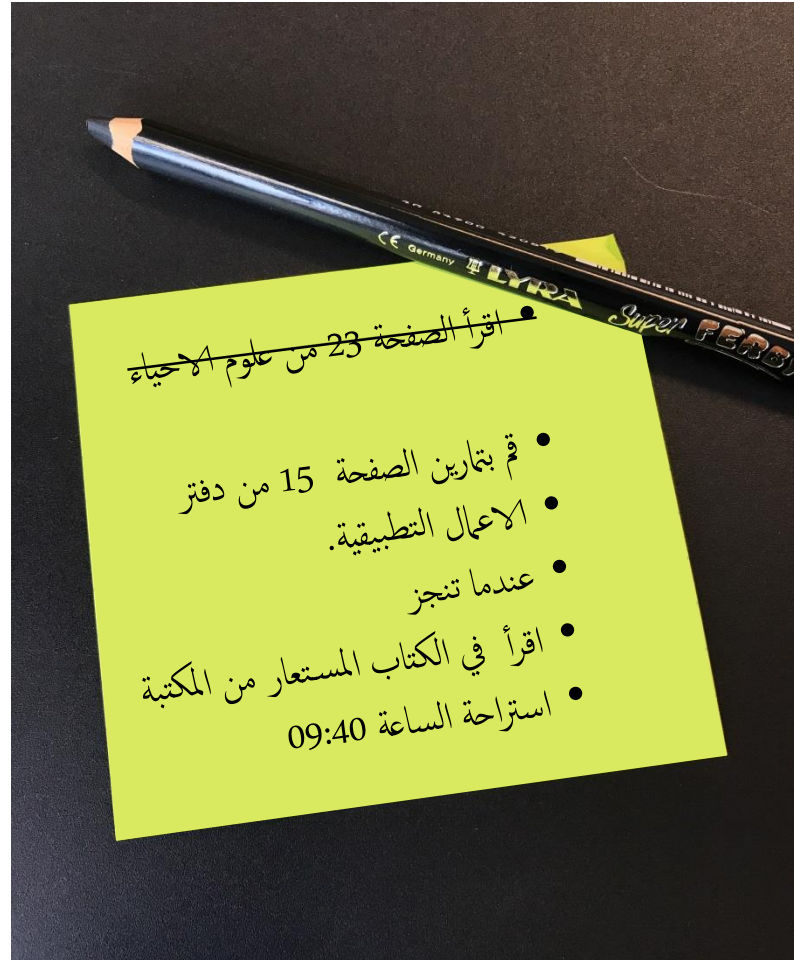 CE Germany LYRA Super FERBY
• اقرأ الصفحة 23 من علوم الاحياء
• قم بتمارين الصفحة 15 من دفتر
• الاعمال التطبيقية.
• عندما تنجز
• اقرأ في الكتاب المستعار من المكتبة
• استراحة الساعة 09:40